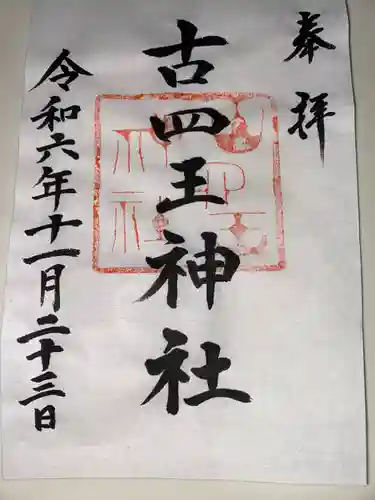 奉拝
古四王神社
令和六年十一月二十三日